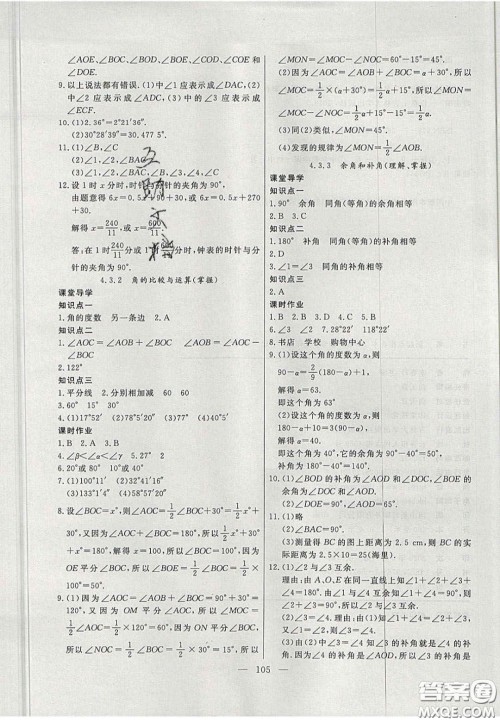 ∠AOE、∠BOC、∠BOD、∠BOE、∠COD、∠COE、
∠DOE.
9. 以上说法都有错误. (1)中∠1 应表示成∠DAC, (2)
中∠2 应表示成∠ADC, (3)中的∠3 应表示成
∠ECF.
10. (1)2.36°=2°21′36″.
(2)30°28′39″=30.477 5°.
11. (1)∠B, ∠C
(2)∠1, ∠2, ∠BAC
(3)∠1, ∠2, ∠BAC, ∠B, ∠C
12. 设 1 时 x 分时, 时针与分针的夹角为 90°.
由题意得 6x=0.5x+90+30, 或 6x=0.5x+270
+30.
解得 x=240/11 或 x=600/11
答: 在 1 时 240/11 分或 1 时 600/11 分, 钟表的时针与分
针的夹角为 90°.
4.3.2 角的比较与运算(掌握)
课堂导学
知识点一
1. 角的度数 另一条边
知识点二
1. ∠AOC=∠BOC ∠AOB ∠AOB=∠BOC
2. 122°
知识点三
1. 平分线 2. 分别相加减 60 60
3. 60° 15° 30°
4. (1)17°52′ (2)78°5′20″ (3)37°58′20″
课时作业
1. B 2. A 3. B
4. ∠β<∠α<∠γ 5. 27° 2
6. 20°或 80° 7. 10°或 50°
8. (1)100°11′ (2)32°41′16″
(3)133°1′54″ (4)58°7′13″
8. 设∠BOC=x°, 则∠AOC=1/2∠BOC+30°=1/2x°
+30°, 又因为∠AOC+∠BOC=180°, 所以 1/2x+30°
+x=180°, 解得 x=100°, 所以∠BOC=100°, 因为
OE 平分∠BOC, 所以∠BOE=1/2∠BOC=1/2×
100°=50°.
9. (1)因为∠AOC=∠AOB+∠BOC=90°+30°=
120°, 又因为 OM 平分∠AOC, 所以∠MOC=
1/2∠AOC=1/2×120°=60°, 因为 ON 平分∠BOC,
所以∠NOC=1/2∠BOC=1/2×30°=15°, 所以
∠MON=∠MOC-∠NOC=60°-15°=45°.
(2)因为∠AOC=∠AOB+∠BOC=α+30°, 所以
∠MOC=1/2×(α+30°)=1/2α+15°, 所以∠MON=
∠MOC-∠NOC=1/2α+15°-15°=1/2α.
(3)同(2)类似, ∠MON=45°.
(4)发现的规律为∠MON=1/2∠AOB.
4.3.3 余角和补角(理解、掌握)
课堂导学
知识点一
1. 90° 余角 同角(等角)的余角相等
2. B 3. D
知识点二
1. 180° 补角 同角(等角)的补角相等
2. A
3. ∠1=∠3 同角的补角相等
知识点三
2. A
课时作业
1. B 2. D 3. A 4. D 5. B
6. ∠3 ∠2 7. 28°22′ 118°22′
8. 书店 学校 购物中心
9. (1)设这个角的度数为 α, 则
90-α=2/9(180-α),
解得 α=63.
即这个角为 63°.
(2)设这个角的度数为 α, 则
180-α+10=3(90-α).
解得 α=40.
即这个角为 40°.
10. (1)∠BOD 的补角为∠AOD 和∠DOC, ∠BOE
的余角为∠AOD 和∠DOC.
(2)∠DOE=90°, ∠AOD=65°.
11. (1)略
(2)∠BAC=90°.
(3)测量得 BC 的图上距离为 2.5 cm, 所以 BC 的实
际距离为 2.5×10=25(海里).
12. (1)∠2 与∠3 互余.
理由: 由 A、O、E 在同一直线上知∠1+∠2+∠3+
∠4=180°. 又因为∠1 与∠4 互余, 即∠1+∠4=
90°, 所以∠2+∠3=180°-(∠1+∠4)=90°, 所以
∠2 与∠3 互余.
(2)∠3 是∠4 的补角.
— 105 —
答案圈
MXQE.COM